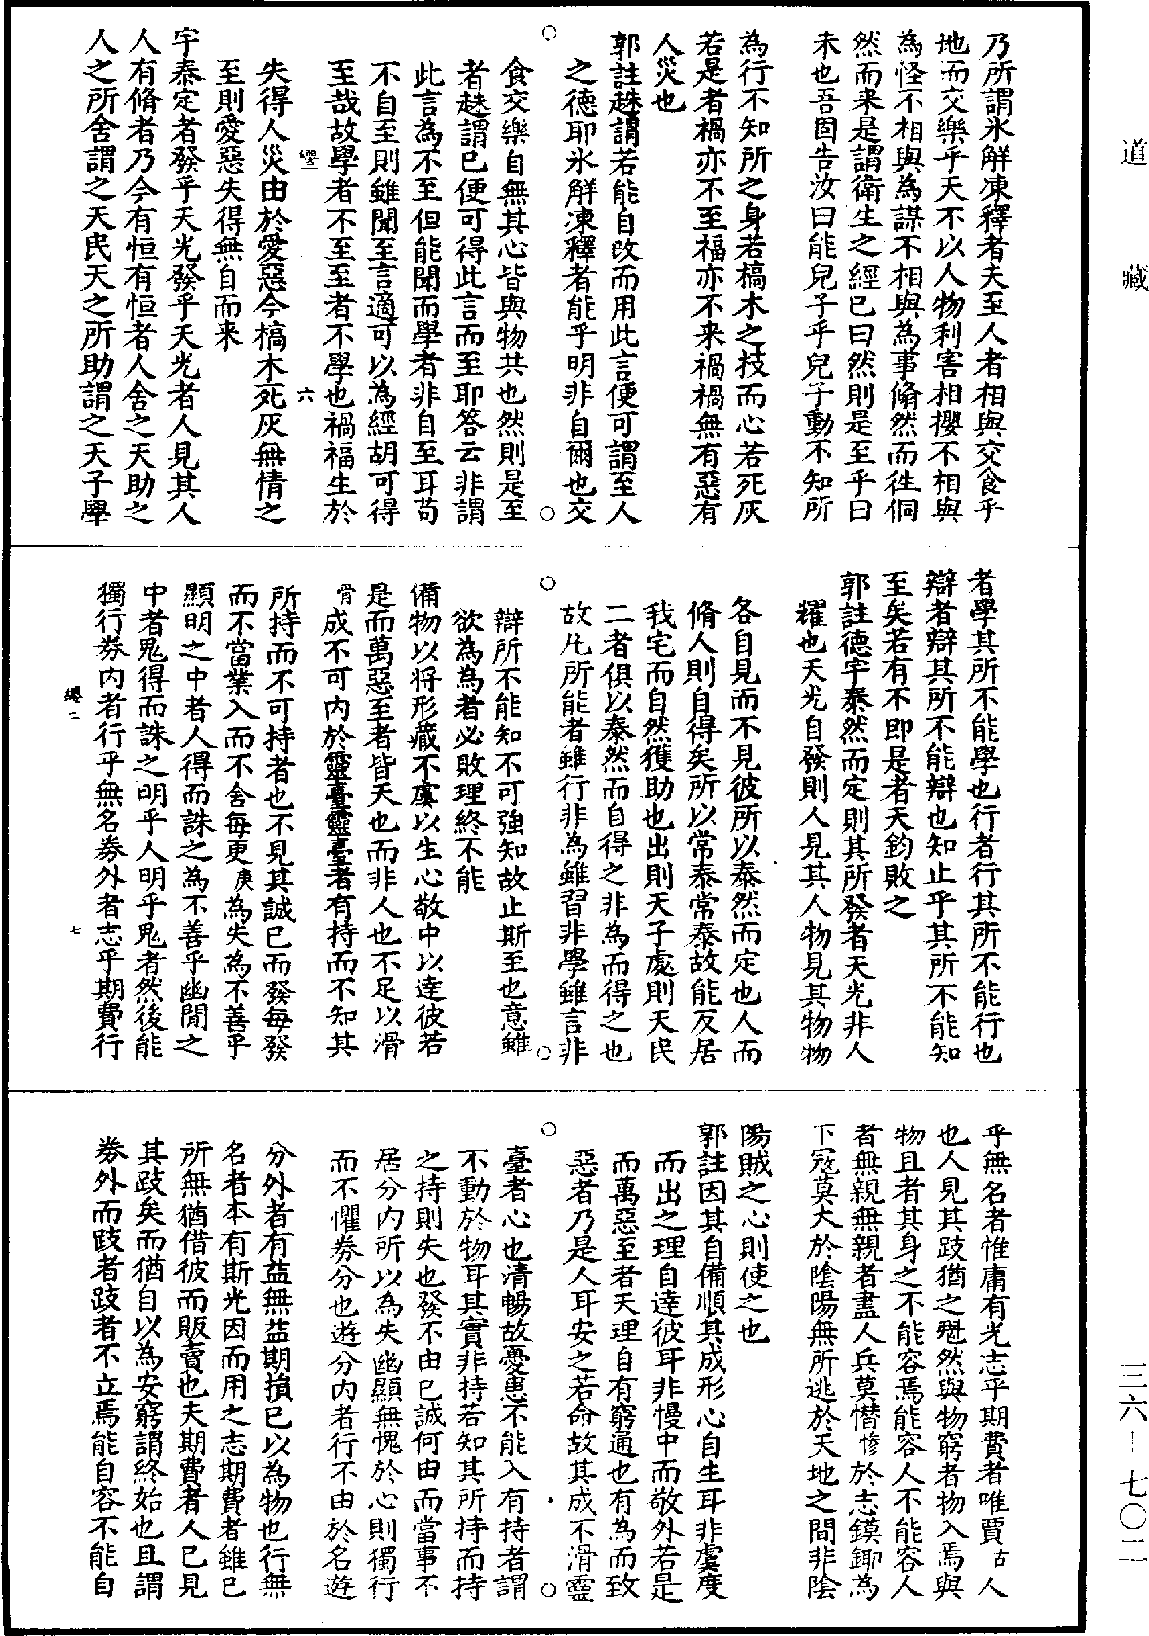 道藏
三六-七〇二
乃所謂氷解凍釋者夫至人者相與交食乎
地而交樂乎天不以人物利害相攖不相與
為怪不相與為謀不相與為事翛然而徃侗
然而来是謂衛生之經已曰然則是至乎曰
未也吾固告汝曰能兒子乎兒子動不知所
為行不知所之身若槁木之技而心若死灰
若是者禍亦不至福亦不来禍禍無有惡有
人災也
郭註趎謂若能自改而用此言便可謂至人
之德耶氷解凍釋者能乎明非自爾也交
食交樂自無其心皆與物共也然則是至
者趎謂已便可得此言而至耶答云非謂
此言為不至但能聞而學者非自至耳苟
不自至則雖聞至言適可以為經胡可得
至哉故學者不至至者不學也禍福生於
六
失得人災由於愛惡今槁木死灰無情之
至則愛惡失得無自而来
宇泰定者發乎天光發乎天光者人見其人
人有脩者乃今有恒有恒者人舍之天助之
人之所舍謂之天民天之所助謂之天子學
者學其所不能學也行者行其所不能行也
辯者辯其所不能辯也知止乎其所不能知
至矣若有不即是者天鈞敗之
郭註德宇泰然而定則其所發者天光非人
耀也天光自發則人見其人物見其物物
各自見而不見彼所以泰然而定也人而
脩人則自得矣所以常泰常泰故能反居
我宅而自然獲助也出則天子處則天民
二者俱以泰然而自得之非為而得之也
故凡所能者雖行非為雖習非學雖言非
辯所不能知不可強知故止斯至也意雖
欲為為者必敗理終不能
備物以将形藏不虞以生心敬中以達彼若
是而萬惡至者皆天也而非人也不足以滑
骨成不可内於靈臺靈臺者有持而不知其
所持而不可持者也不見其誠已而發每發
而不當業入而不舍每更庚為失為不善乎
顯明之中者人得而誅之為不善乎幽閒之
中者鬼得而誅之明乎人明乎鬼者然後能
獨行券内者行乎無名券外者志乎期費行
七
乎無名者惟庸有光志乎期費者唯賈古人
也人見其跂猶之魁然與物窮者物入焉與
物且者其身之不能容焉能容人不能容人
者無親無親者盡人兵莫憯慘於志鏌鋣為
下寇莫大於陰陽無所逃於天地之間非陰
陽賊之心則使之也
郭註因其自備順其成形心自生耳非虞度
而出之理自達彼耳非慢中而敬外若是
而萬惡至者天理自有窮通也有為而致
惡者乃是人耳安之若命故其成不滑靈
臺者心也清暢故憂患不能入有持者謂
不動於物耳其實非持若知其所持而持
之持則失也發不由已誠何由而當事不
居分内所以為失幽顯無愧於心則獨行
而不懼券分也遊分内者行不由於名遊
分外者有益無益期損已以為物也行無
名者本有斯光因而用之志期費者雖已
所無猶借彼而販賣也夫期費者人已見
其跂矣而猶自以為安窮謂終始也且謂
券外而跂者跂者不立焉能自容不能自